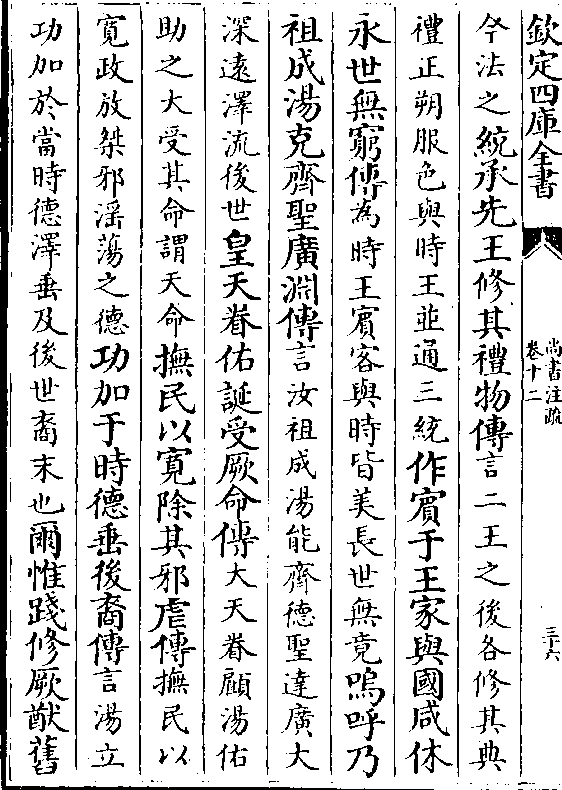 欽定四庫全書
尚書注疏
卷十二
三十六
今法之統承先王修其禮物傳言二王之後各修其典
禮正朔服色與時王並通三統作賓于王家與國咸休
永世無窮傳為時王賓客與時皆美長世無竟嗚呼乃
祖成湯克齊聖廣淵傳言汝祖成湯能齊德聖達廣大
深遠澤流後世皇天眷佑誕受厥命傳大天眷顧湯佑
助之大受其命謂天命撫民以寬除其邪虐傳撫民以
寛政放桀邪滛蕩之德功加于時德垂後裔傳言湯立
功加於當時德澤垂及後世裔末也爾惟踐修厥猷舊